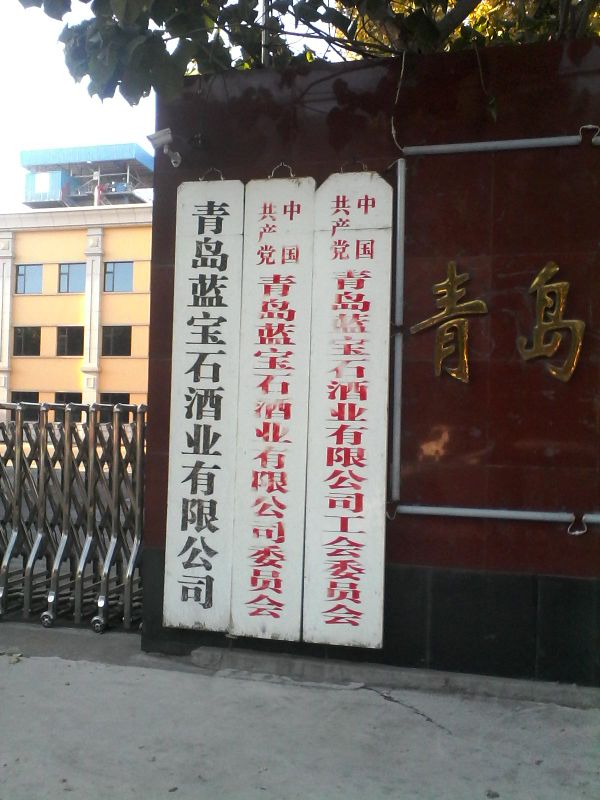 青岛蓝宝石酒业有限公司
中国共产党青岛蓝宝石酒业有限公司委员会
中国共产党青岛蓝宝石酒业有限公司工会委员会
青岛